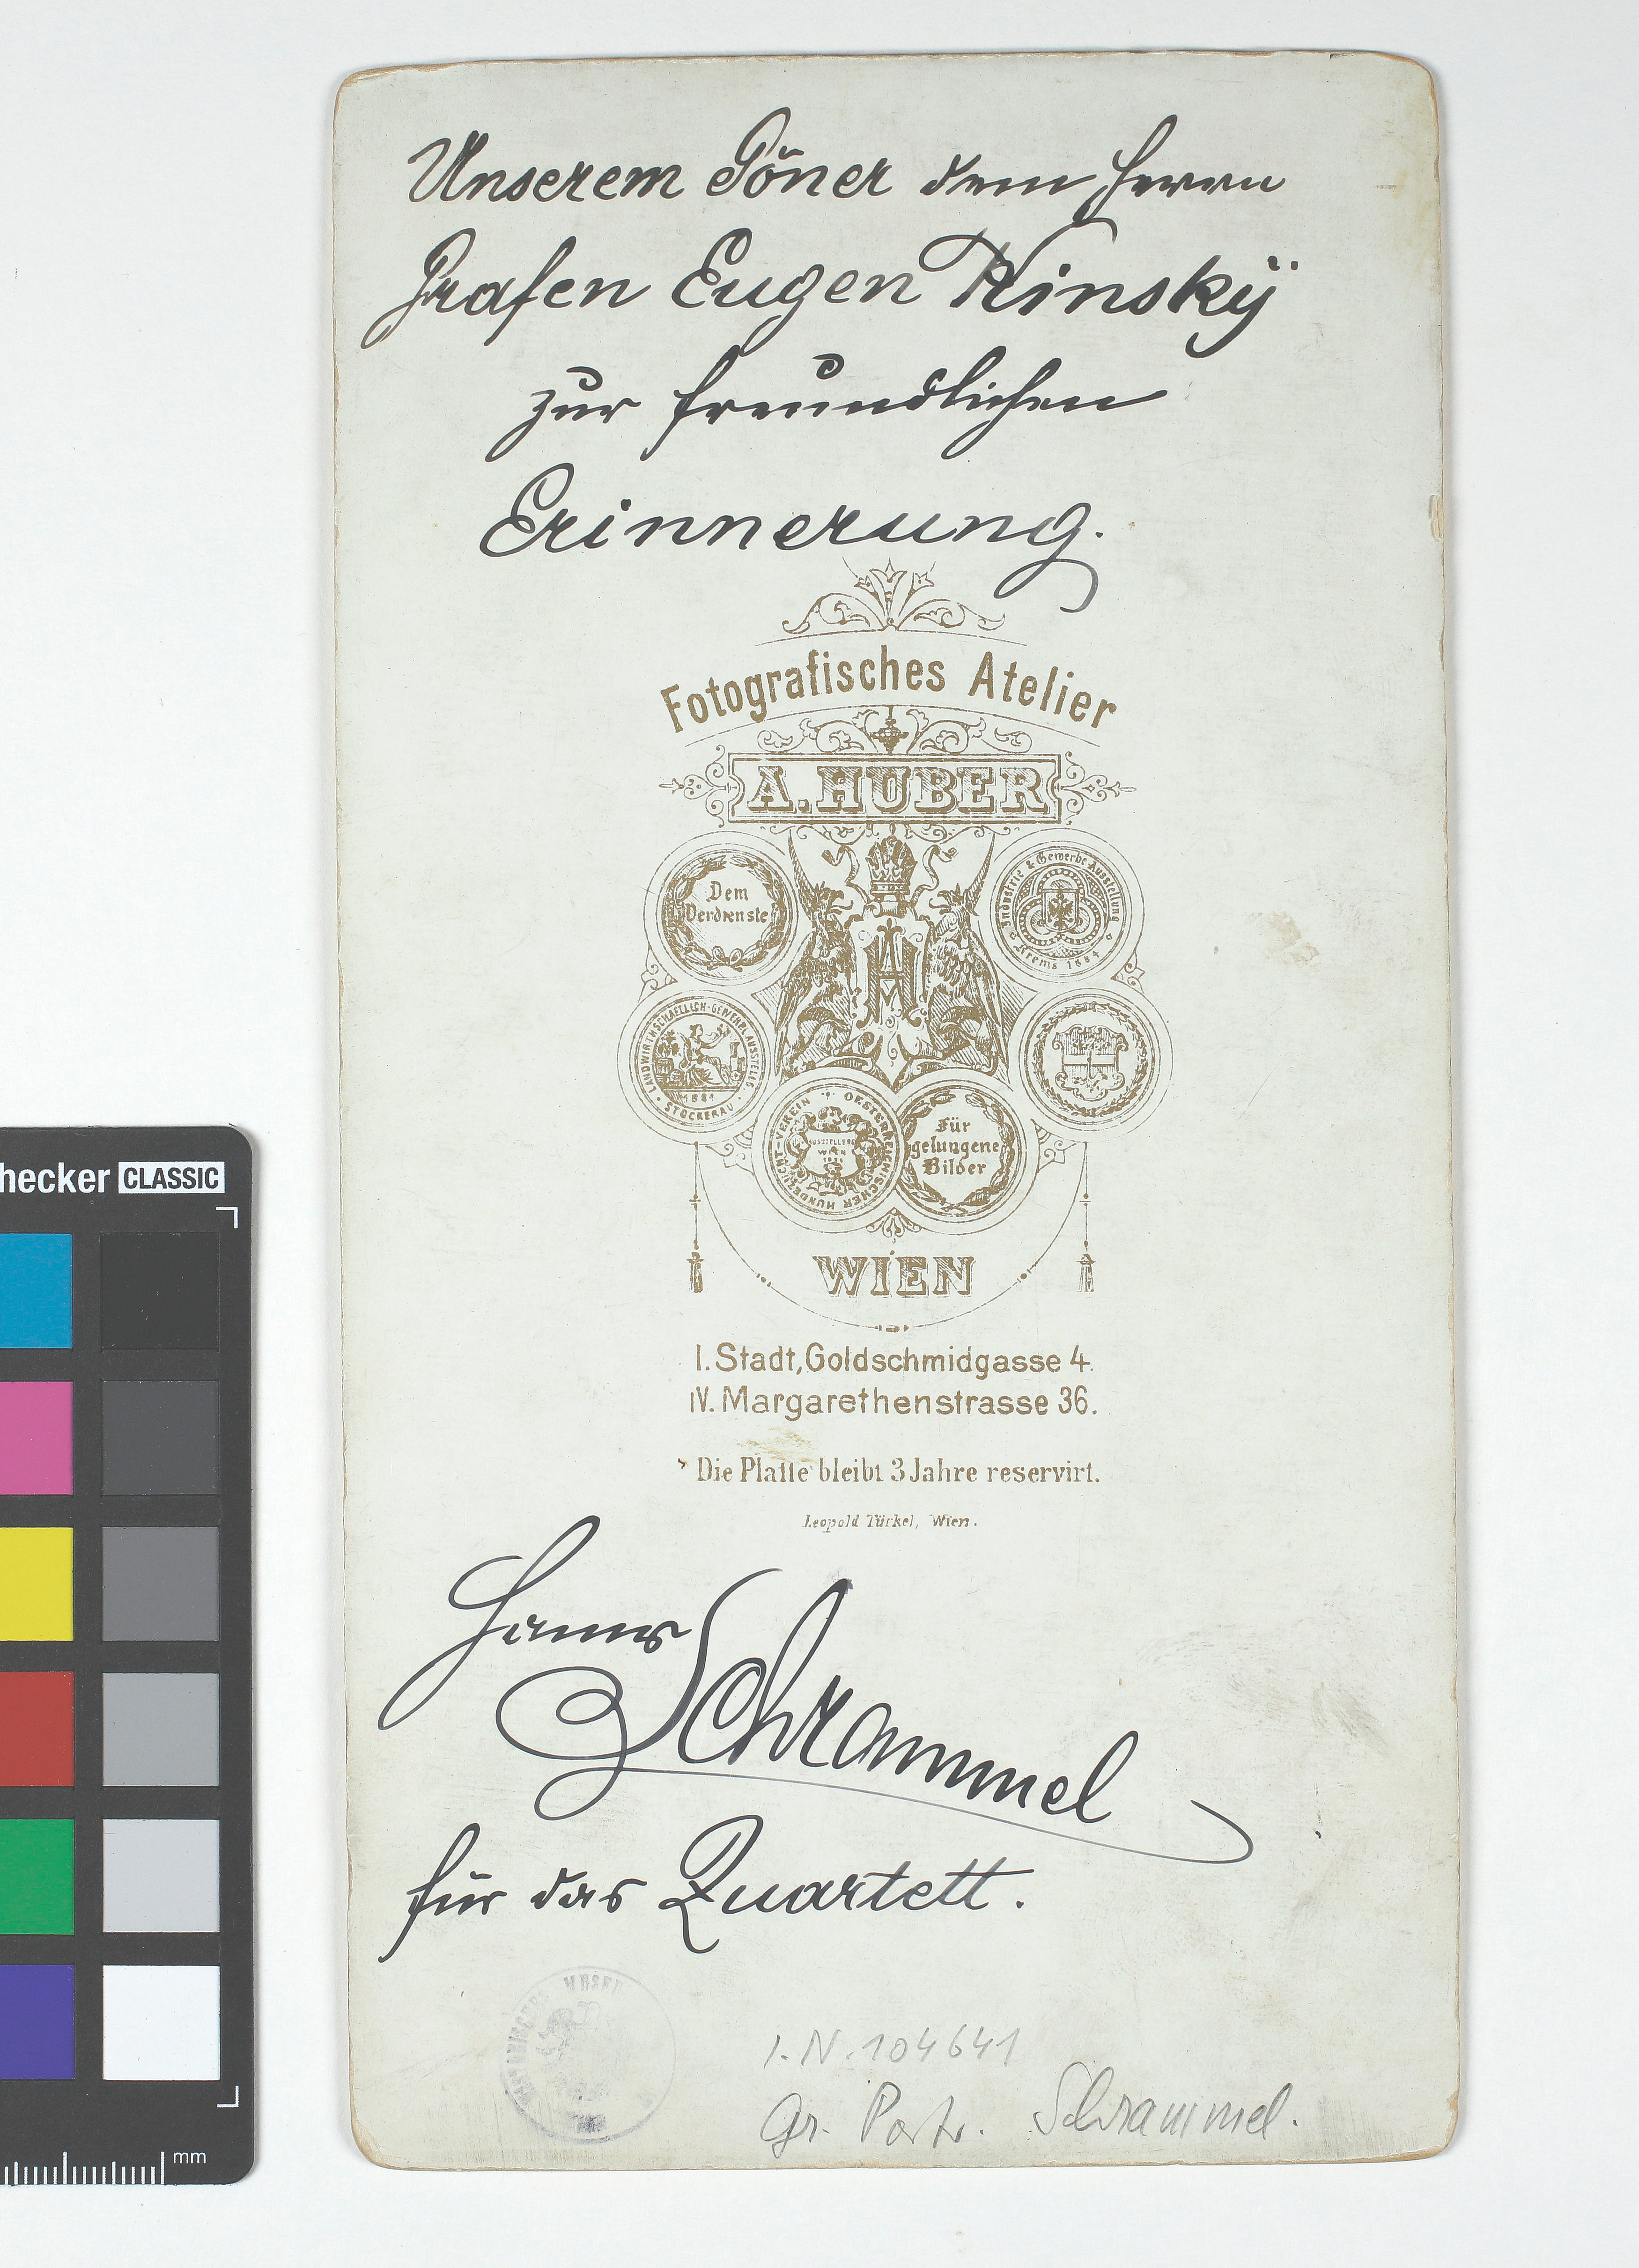 Unserem Göner dem Herrn
Grafen Eugen Kinsky
zur freundlichen
Erinnerung.
Fotografisches Atelier
A. HUBER
Dem
Verdienste
Industrie & Gewerbe Ausstellung
Krems 1884
LANDWIRTHSCHAFTLICH-GEWERBL. AUSSTELLG.
1881
STOCKERAU
OESTERREICHISCHER HUNDEZUCHT-VEREIN
AUSSTELLUNG
WIEN
Für
gelungene
Bilder
WIEN
I. Stadt, Goldschmidgasse 4.
IV. Margarethenstrasse 36.
Die Platte bleibt 3 Jahre reservirt.
Leopold Türkel, Wien.
Hanns
Schrammel
für das Quartett.
HISTORISCHES MUSEUM
I.N. 104641
Gr. Portr. Schrammel.
hecker CLASSIC
mm